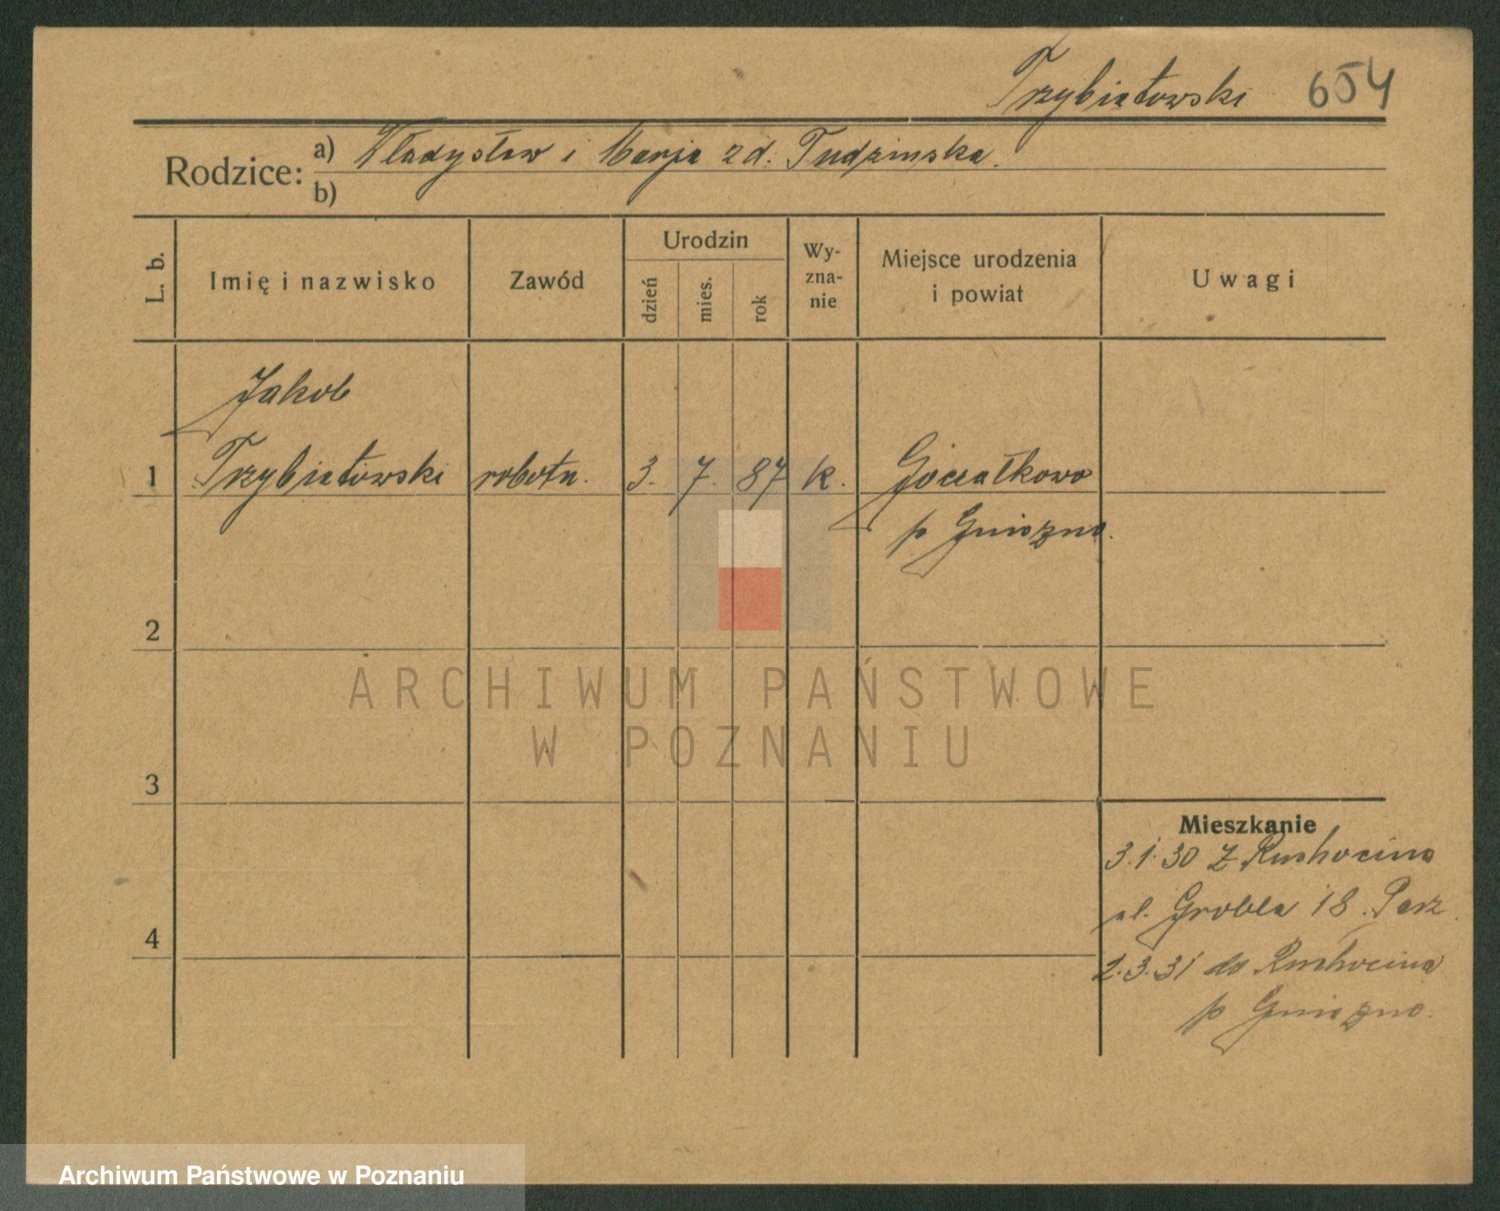 Trzybiatowski 654
Rodzice: a) Władysław i Marja zd. Tudzinska.
b)
L. b. Imię i nazwisko Zawód Urodzin dzień mies. rok Wy-zna-nie Miejsce urodzenia i powiat Uwagi
Jakob
1 Trzybiatowski robotn. 3. 7. 87 k.
p Gniezno.
2
ARCHIWUM PAŃSTWOWE
W POZNANIU
3
Mieszkanie
3.1.30 z Ruchocina
ul. Grobla 18. Parz
4
2.3.31 do Ruchocina
p Gniezno.
Archiwum Państwowe w Poznaniu